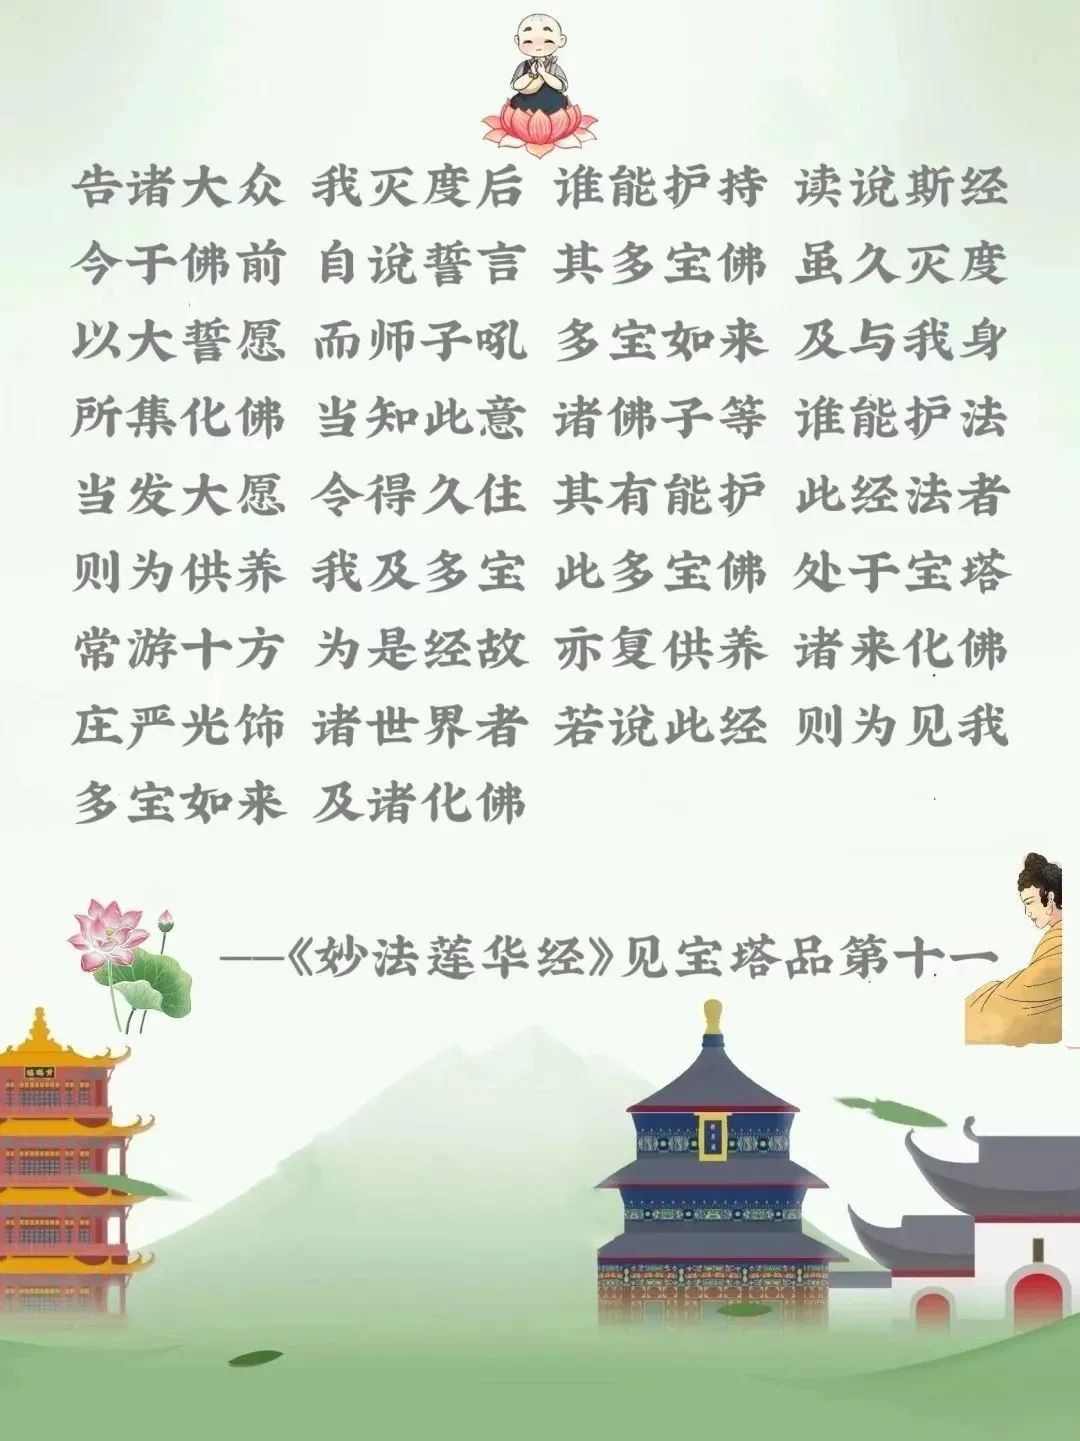 告诸大众 我灭度后 谁能护持 读说斯经
今于佛前 自说誓言 其多宝佛 虽久灭度
以大誓愿 而师子吼 多宝如来 及与我身
所集化佛 当知此意 诸佛子等 谁能护法
当发大愿 令得久住 其有能护 此经法者
则为供养 我及多宝 此多宝佛 处于宝塔
常游十方 为是经故 亦复供养 诸来化佛
庄严光饰 诸世界者 若说此经 则为见我
多宝如来 及诸化佛
——《妙法莲华经》见宝塔品第十一